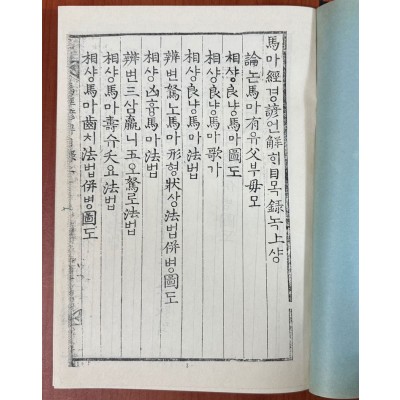 馬마經경諺언解히目목錄녹上샹
論논馬마有유父부母모
相샹良냥馬마圖도
相샹良냥馬마歌가
相샹良냥馬마法법
辨변駑노馬마形형狀상法법倂병圖도
相샹凶흉馬마法법
辨변三삼羸니五오駑로法법
相샹馬마壽슈夭요法법
相샹馬마齒치法법倂병圖도